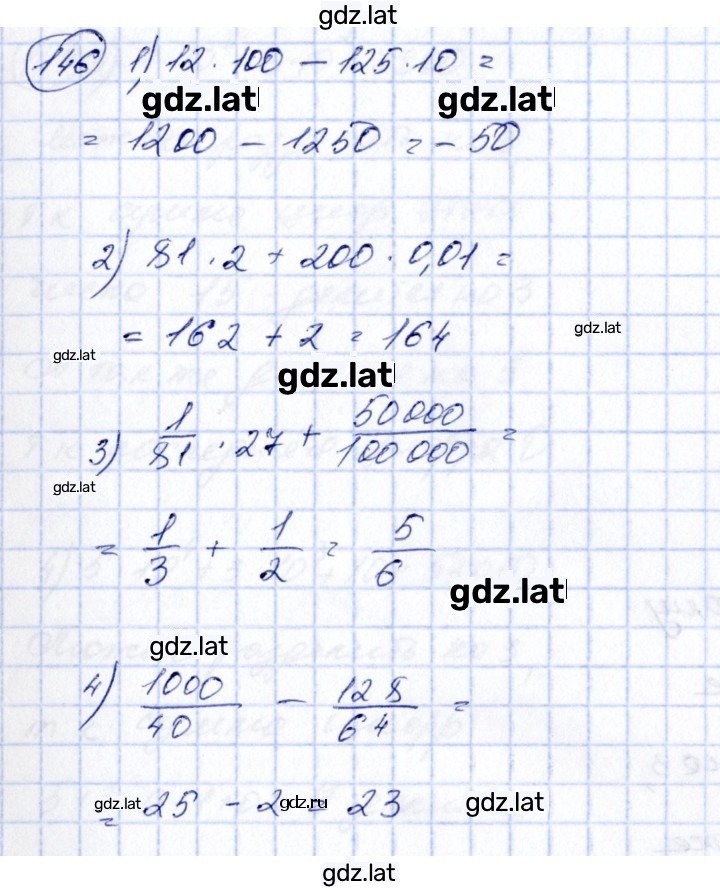 gdz.lat
146 1) 12 · 100 - 125 · 10 =
gdz.lat gdz.lat
= 1200 - 1250 = - 50
2) 81 · 2 + 200 · 0,01 =
= 162 + 2 = 164
gdz.lat gdz.lat gdz.lat
3) 1/81 · 27 + 50000/100 000 =
gdz.lat
= 1/3 + 1/2 = 5/6
gdz.lat
gdz.lat
4) 1000/40 - 128/64 =
= 25 - 2 = 23
gdz.lat gdz.ru gdz.lat
gdz.lat